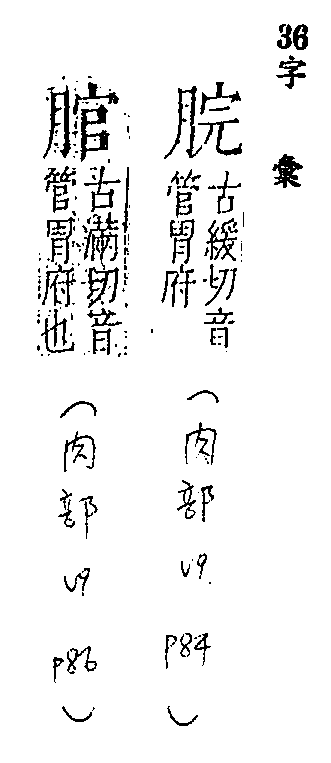 36字彙
脘古緩切音管胃府
(肉部 v9. p84)
䐠古滿切音管胃府也
(肉部 v9 p86)